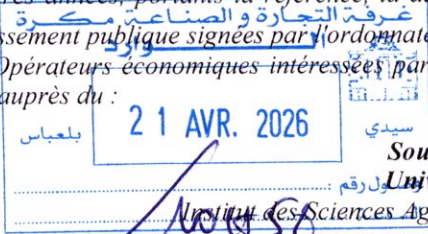 res années, portants la référence, la d
غرفة التجارة والصناعة مكرة
ssement publique signées par l'ordonnate
الوارد
Opérateurs économiques intéressées par
auprès du :
21 AVR. 2026
سيدي بلعباس
Sou
Univ
Institut des Sciences Ag